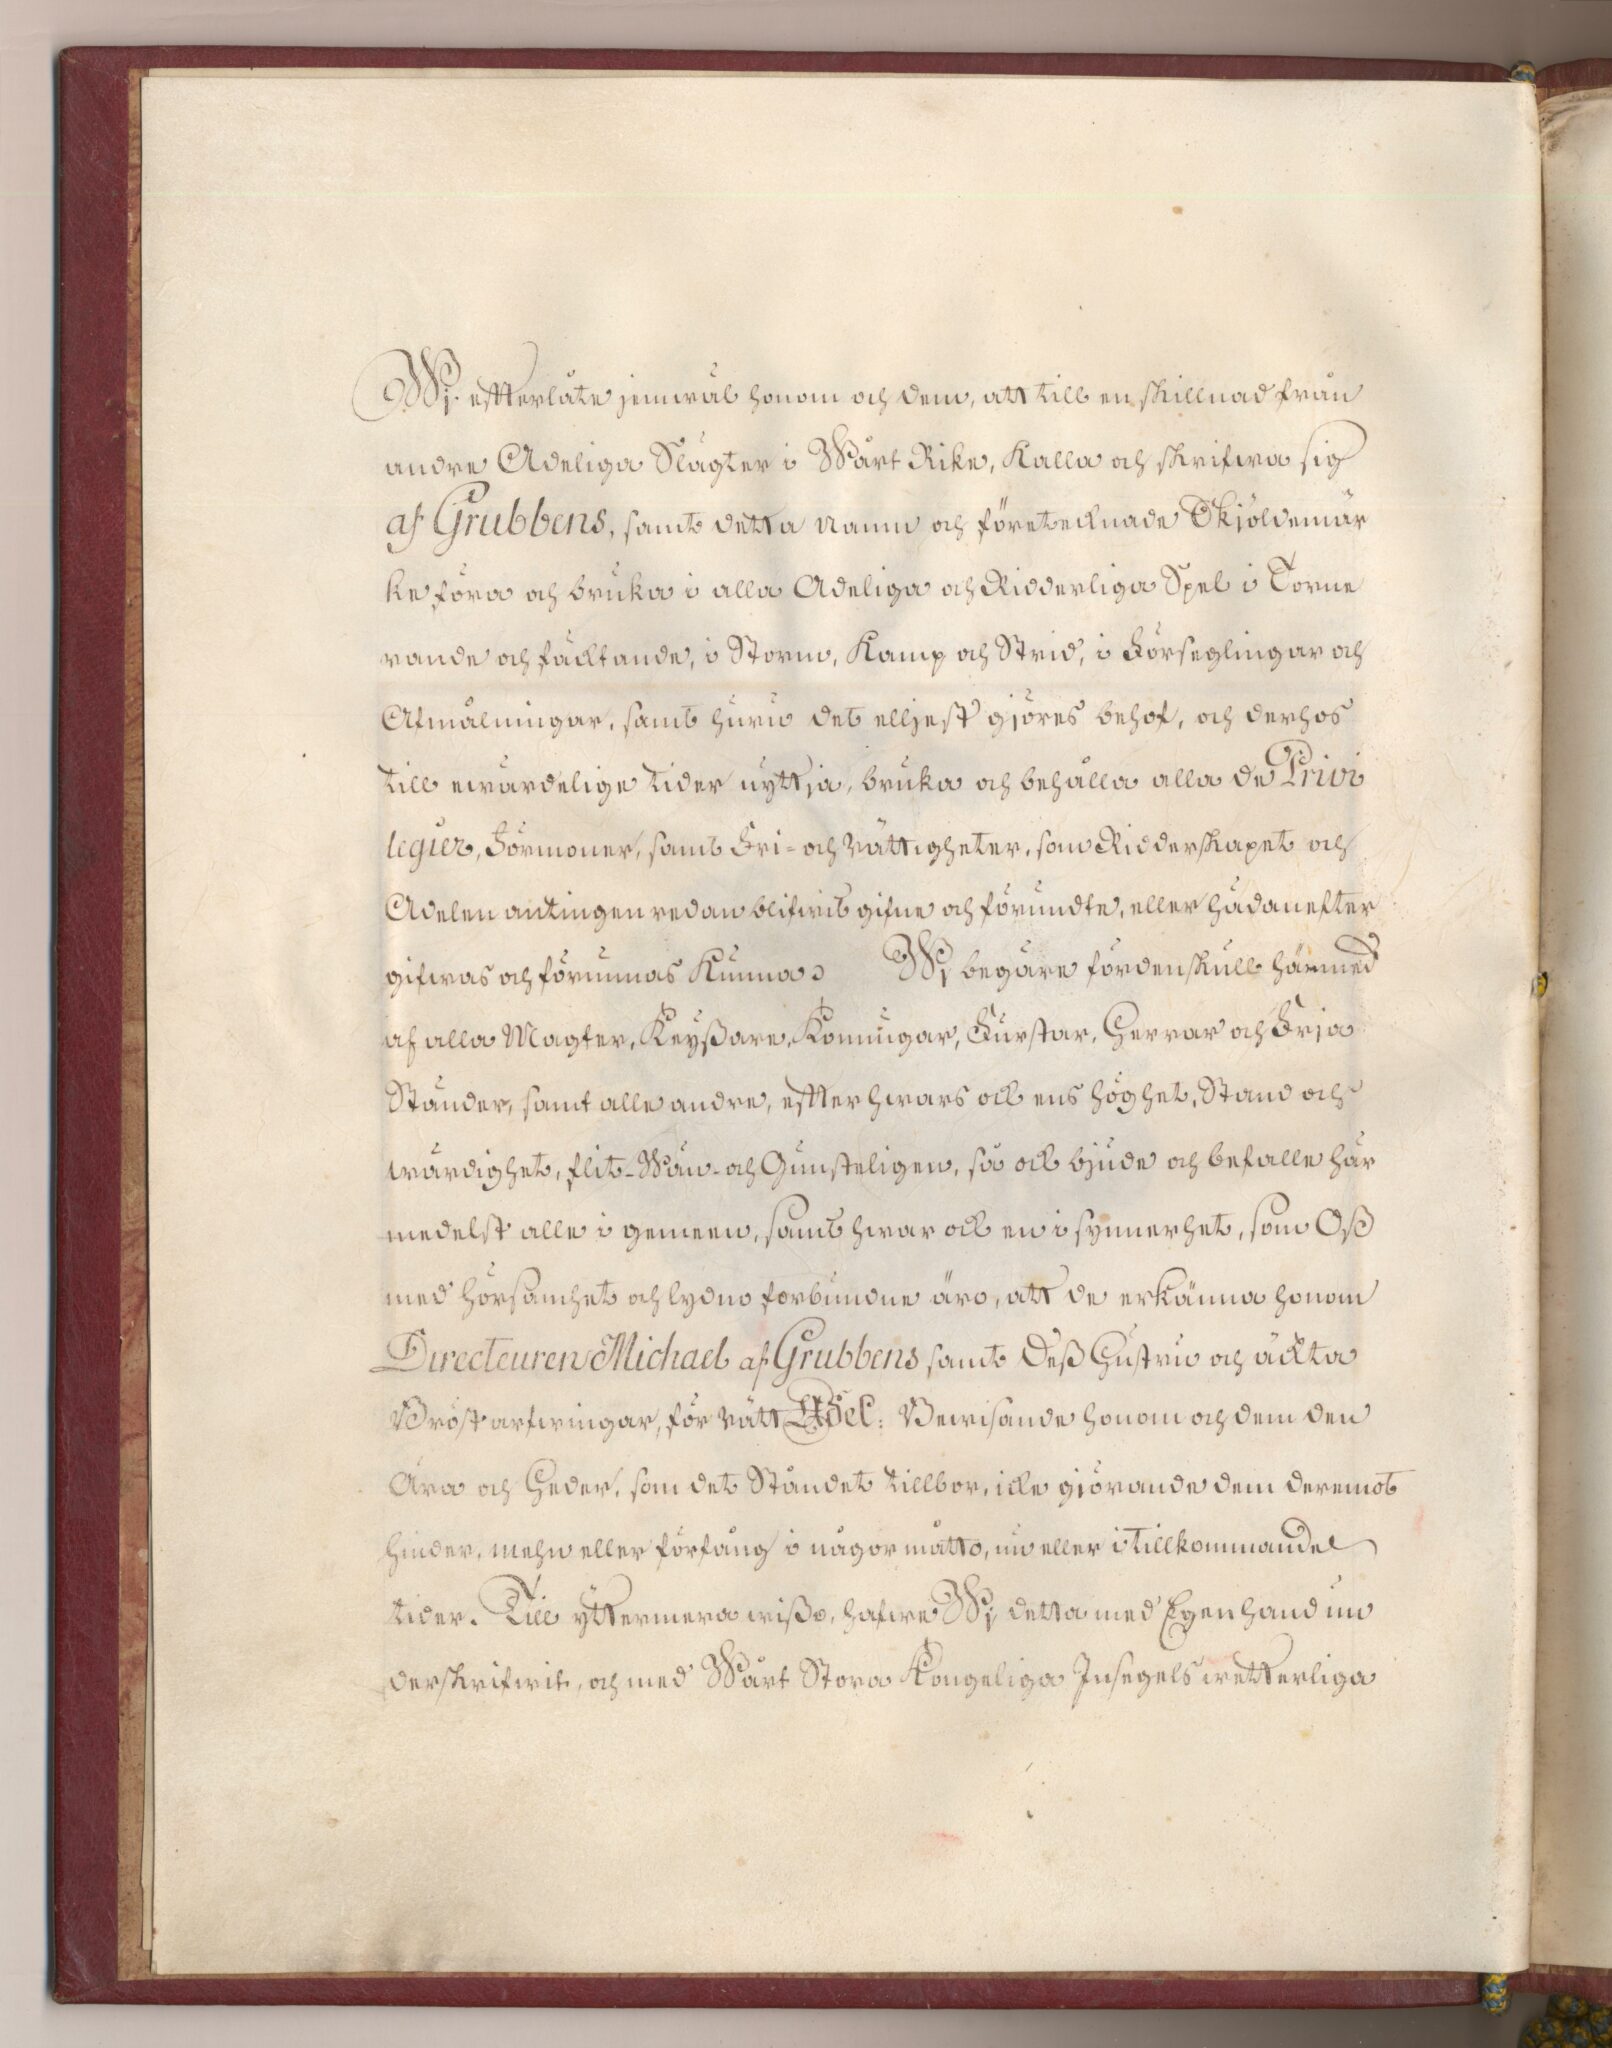 Wj effterlåte jemwäl honom och dem, att till en skillnad från
andre Adeliga Slägter i Wårt Rike, Kalla och skrifwa sig
af Grubbens, samt detta namn och företecknade Skjöldemär
ke föra och bruka i alla Adeliga och Ridderliga Spel i Torne
rande och fäcktande, i Storm, Kamp och Strid, i Förseglingar och
Afmålningar, samt huru det elljest giöres behof, och derhos
till ewärdelige tider nyttja, bruka och behålla alla de Privi
legier, Förmoner, samt Fri- och Rättigheter, som Ridderskapet och
Adelen antingen redan blifwit gifne och förundte, eller hädanefter
gifwas och förunnas Kunna. Wj begäre fördenskull härmed
af alla Magter, Keyßare, Konungar, Furstar, Herrar och Fria
Ständer, samt alle andre, effter hwars ock ens höghet, Stånd och
wärdighet, flit- Wän- och Gunsteligen, så ock bjude och befalle här
medelst alle i gemeen, samt hwar ock en i synnerhet, som Oß
med hörsamhet och lydno förbundne äro, att de erkänna honom
Directeuren Michael af Grubbens samt Deß Hustru och äckta
Bröstarfwingar, för rätt Adel: Bewisande honom och dem den
Ära och Heder, som det Ståndet tillbör, icke giörande dem deremot
hinder, mehn eller förfång i någor måtto, nu eller i tillkommande
tider. Till yttermera wißo, hafwe Wj detta med Egen hand un
derskrifwit, och med Wårt Stora Kongeliga Insegel wetterliga